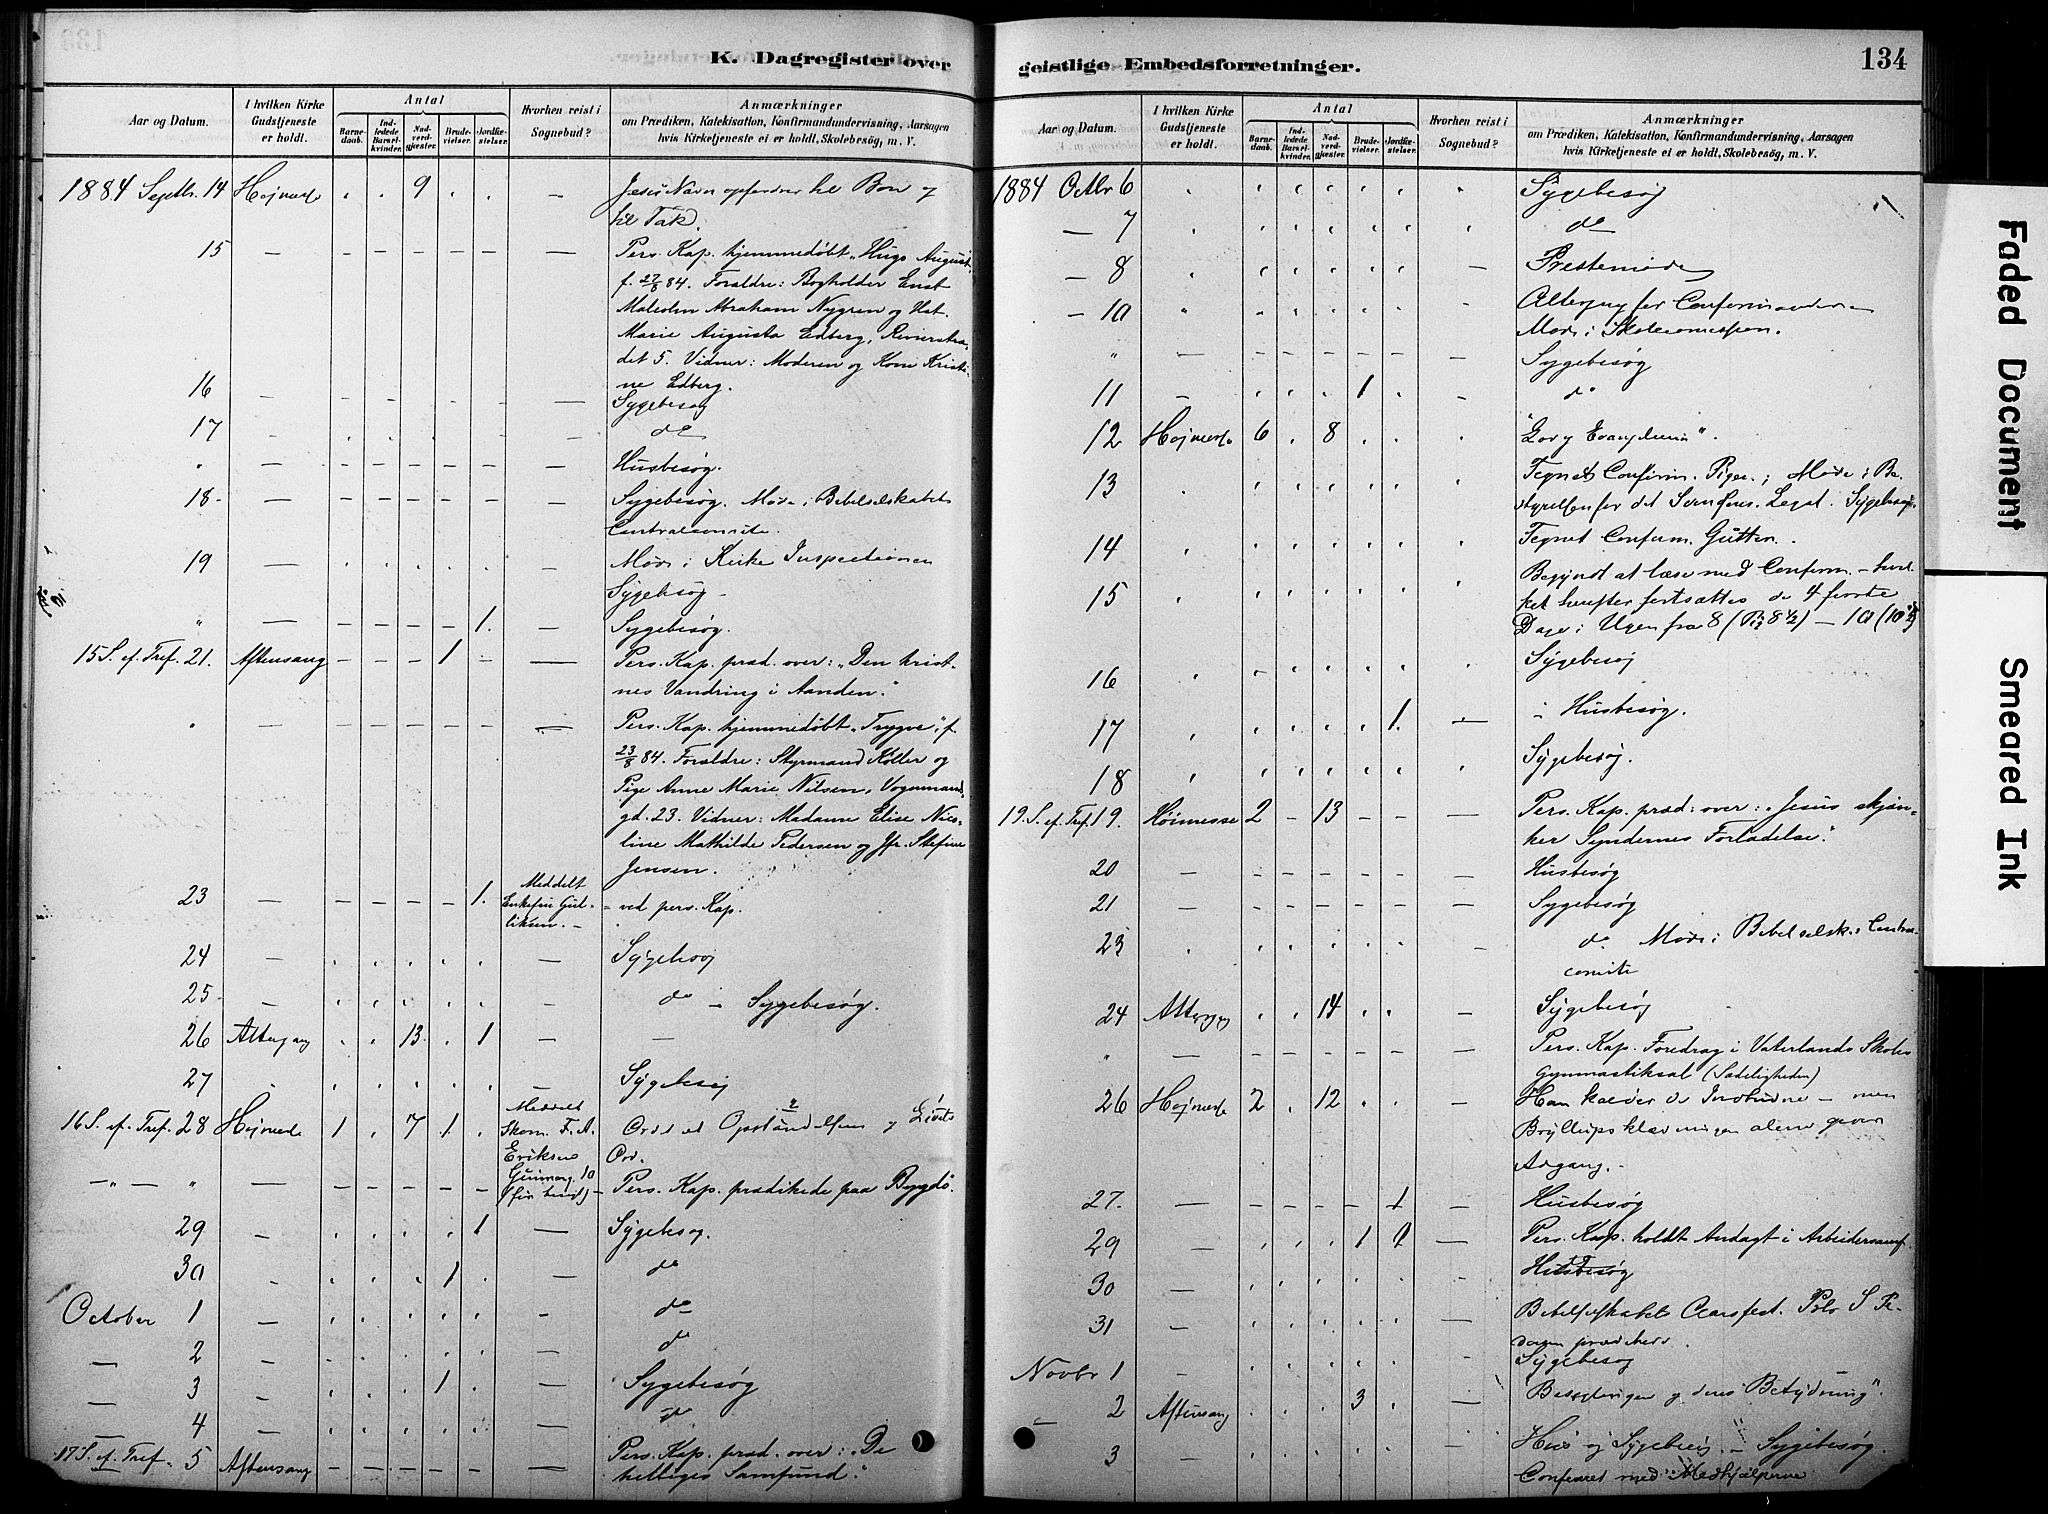 K. Dagregister over
Aar og Datum.
I hvilken Kirke Gudstjeneste er holdt.
Antal
Barnedaab.
Indledede Barselkvinder.
Nadverdgjæster.
Brudevielser.
Jordfæstelser.
Hvorhen reist i Sognebud?
Anmærkninger
om Prædiken, Katekisation, Konfirmandundervisning, Aarsagen
hvis Kirketjeneste ei er holdt, Skolebesøg, m. V.
1884 Septbr. 14 Højmesse 9 Jesu Navn opfordrer til Bøn og
til Tak.
15 Pers. Kap. hjemmedøbt "Hugo August,
f. 27/8 84. Foraldre: Bogholder Ernst
Malcolm Abraham Nygren og Hst.
Marie Augusta Edberg, Revierstra-
det 5. Vidner: Moderen og Kone Kristi-
ne Edberg.
16 Sygebesøg
17 do
" Husbesøg.
18 Sygebesøg. Møde i Bibelselskabets
Centralcomite.
19 Møde i Kirke Inspectionen
Sygebesøg
" 1. Sygebesøg.
15 S. ef. Tref. 21. Aftensang 1 Pers. Kap. præd. over: "Den krist-
nes Vandring i Aanden."
" Pers. Kap. hjemmedøbt "Trygve", f.
23/8 84. Foraldre: Styrmand Køller og
Pige Anne Marie Nilsen, Vognmands-
gd. 23. Vidner: Madame Elise Nico-
line Mathilde Pedersen og Jfr. Stefine
Jensen.
23 1. Meddelt
Enkefru Gul-
liksen. ved pers. Kap.
24 Sygebesøg
25 do – Sygebesøg.
26 Altergang 13 1
27 Sygebesøg
16 S. ef. Tref. 28 Højmesse 1 7 1 Meddelt
Skom. F. A.
Eriksen
10
Ord.
" Pers. Kap. prædikede paa Bygdø.
29 1 Sygebesøg.
30 1 do
October 1 do
2 do
3 1 Sygebesøg
4 do
17 S. ef. Tref. 5 Aftensang Pers. Kap. præd. over: "De
helliges Samfund."
geistlige Embedsforretninger.
134
Aar og Datum.
I hvilken Kirke Gudstjeneste er holdt.
Antal
Barnedaab.
Indledede Barselkvinder.
Nadverdgjæster.
Brudevielser.
Jordfæstelser.
Hvorhen reist i Sognebud?
Anmærkninger
om Prædiken, Katekisation, Konfirmandundervisning, Aarsagen
hvis Kirketjeneste ei er holdt, Skolebesøg, m. V.
1884 Octbr 6 Sygebesøg
7 do
8 Præstemøde
10 Altergang for Confirmander
Møde i Skolecommission.
" Sygebesøg
11 1 do
12 Højmesse 6 8 "Lov og Evangelium".
13 Tegnet Confirm. Piger; Møde i Be-
styrelsen for det Legat. Sygebesøg.
14 Tegnet Confirm. Gutter.
15 Begyndt at læse med Confirm. – hvil-
ket herefter fortsættes de 4 første
Dage i Ugen fra 8 (8 1/2) – 10 (10 1/2)
16 Sygebesøg
17 1. Husbesøg.
18 Sygebesøg.
19. S. ef. Tref. 19. Høimesse 2 13 Pers. Kap. præd: over: "Jesus skjæn-
ker Syndernes Forladelse."
20 Husbesøg
21 Sygebesøg
23 do Møde i Bibelselsk. Central-
comite
24 Altergang 14 Sygebesøg
" Pers. Kap. Foredrag i Vaterlands Skoles
Gymnastiksal (Sædeligheden)
26 Højmesse 2 12 Han kalder de Indbudne – men
Bryllupsklædningen alene giver
Adgang.
27. 1 Husbesøg
29 1 1 Pers. Kap. holdt Andagt i Arbeidersamf.
30 Husbesøg
31 Bibelselskabets Aarsfest.
Novbr 1 Sygebesøg
2 Aftensang 3 og dens Betydning".
3 Hus og Sygebesøg – Sygebesøg.
med Medhjælperne
Faded Document
Smeared Ink